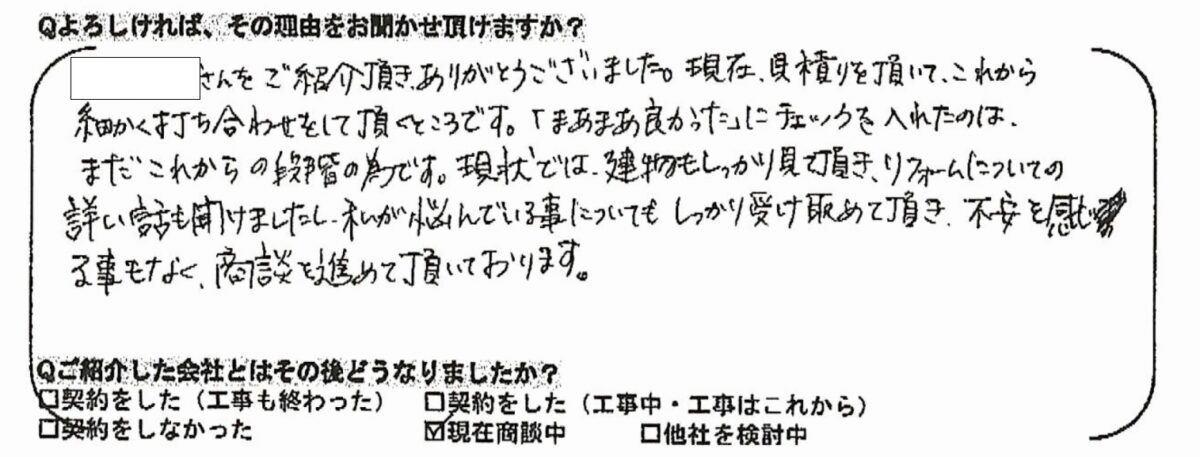 Qよろしければ、その理由をお聞かせ頂けますか？
さんをご紹介頂き、ありがとうございました。現在、見積りを頂いて、これから
細かく打ち合わせをして頂くところです。「まあまあ良かった」にチェックを入れたのは、
まだこれからの段階の為です。現状では、建物もしっかり見て頂き、リフォームについての
詳しい話も聞けましたし、私が悩んでいる事についてもしっかり受け取めて頂き、不安を感じ
る事もなく、商談を進めて頂いております。
Qご紹介した会社とはその後どうなりましたか？
□契約をした（工事も終わった） □契約をした（工事中・工事はこれから）
□契約をしなかった ☑現在商談中 □他社を検討中